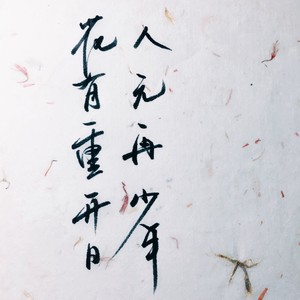 花有重开日
人无再少年